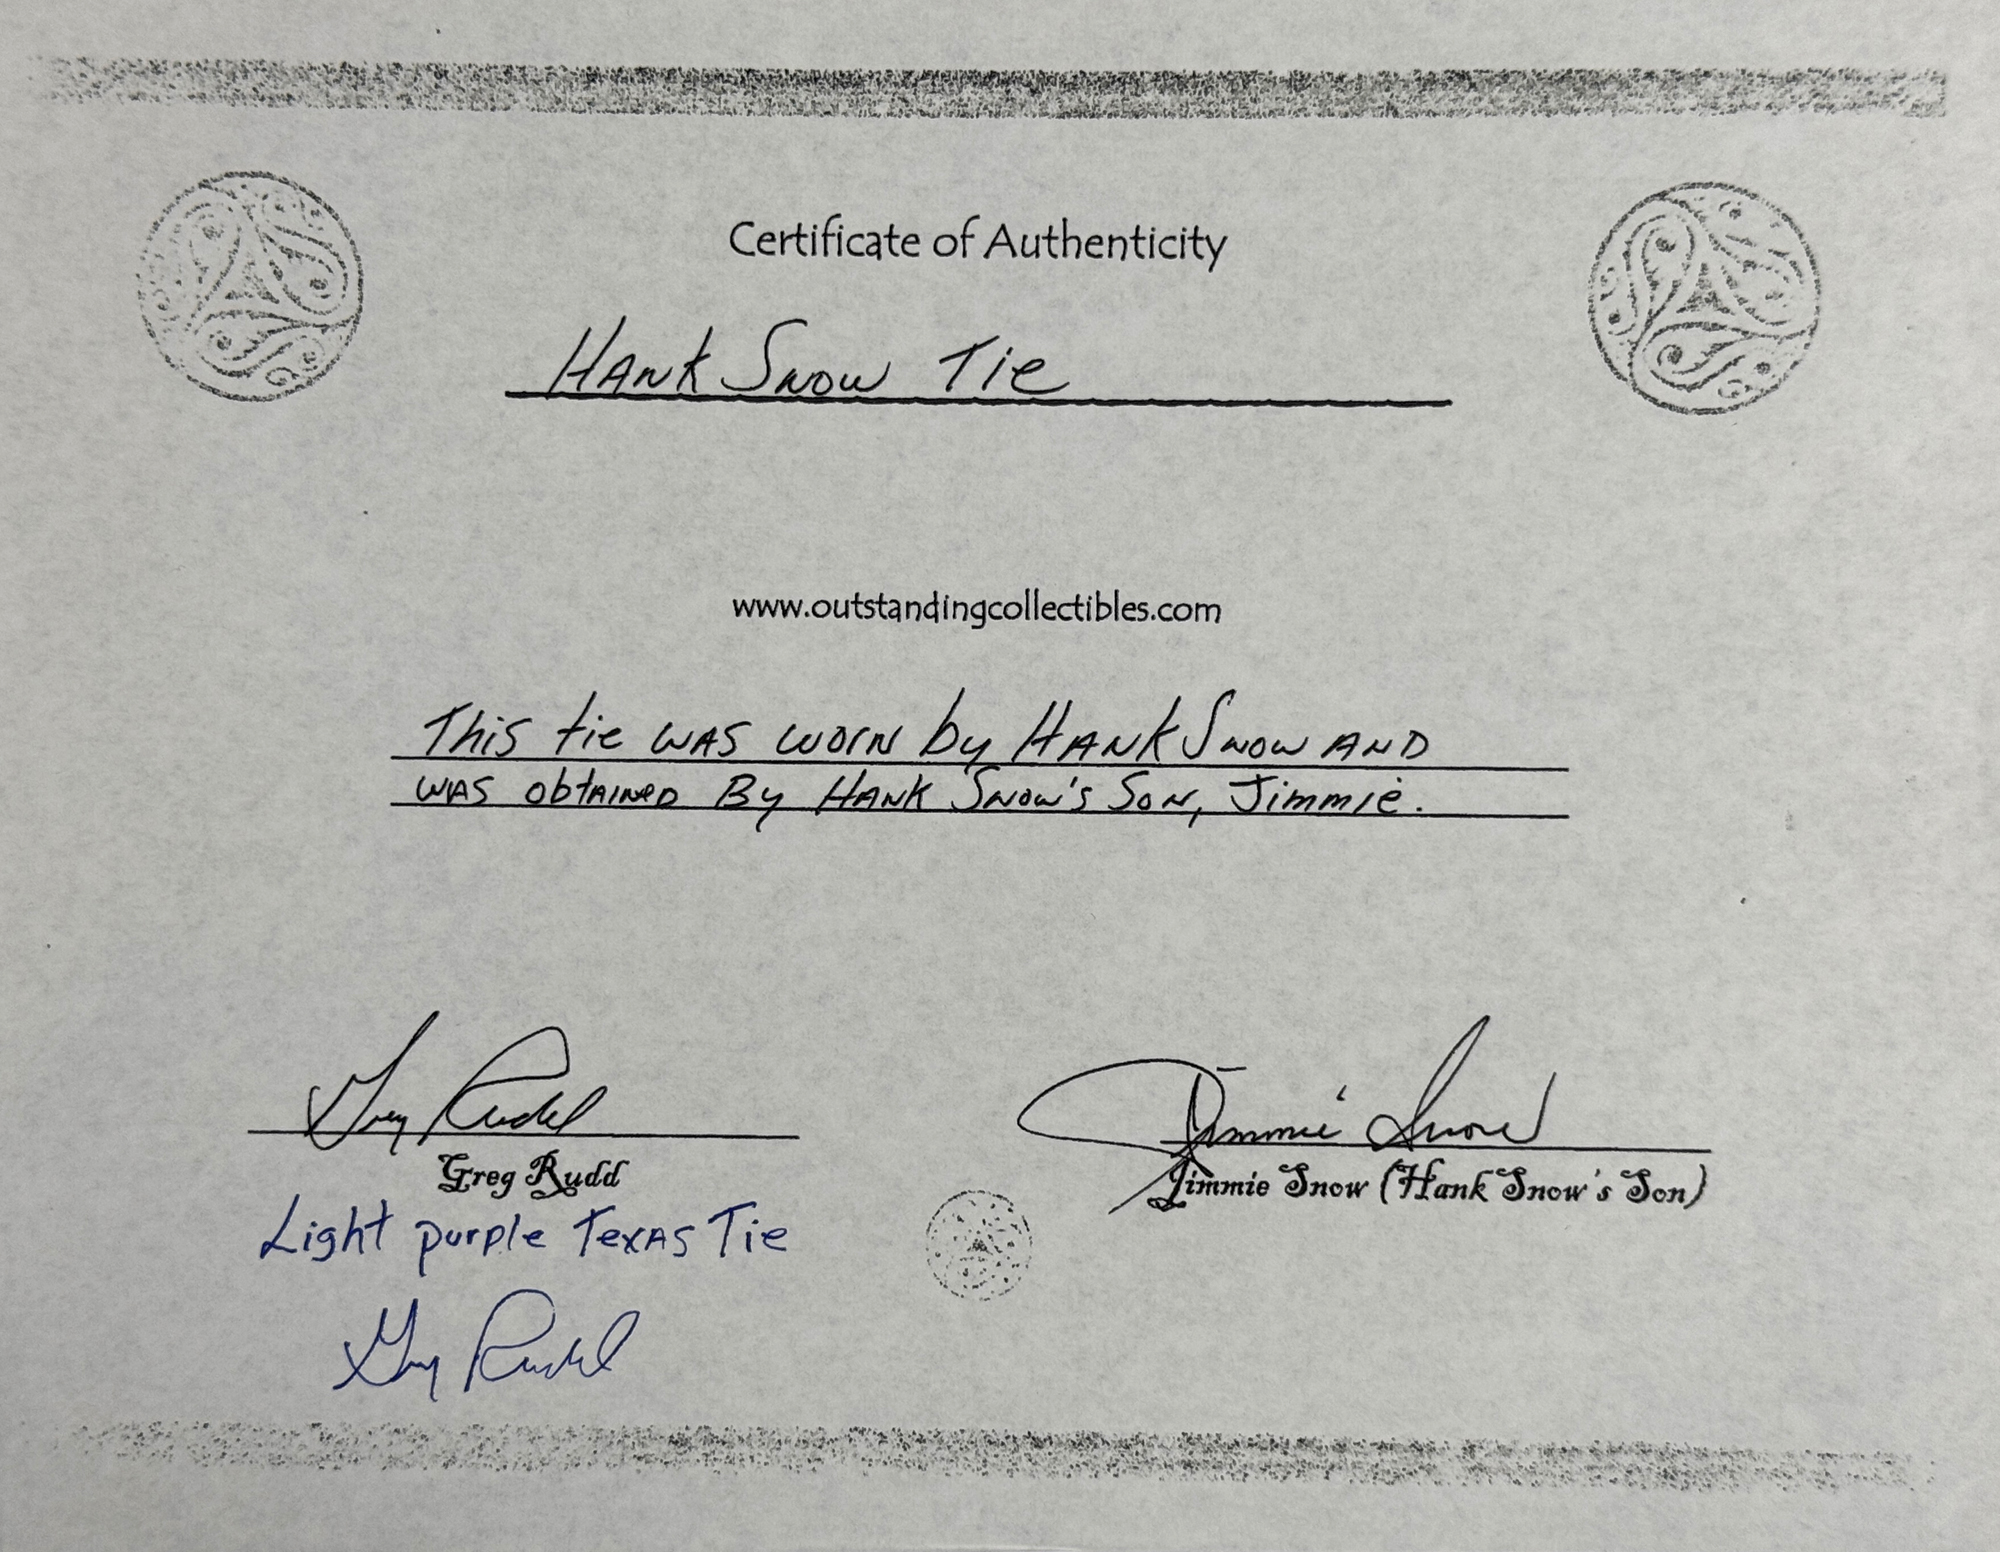 Certificate of Authenticity
Hank Snow Tie
www.outstandingcollectibles.com
This tie was worn by Hank Snow and
was obtained By Hank Snow's Son, Jimmie.
Greg Rudd
Jimmie Snow
Greg Rudd
Jimmie Snow (Hank Snow's Son)
Light purple Texas Tie
Greg Rudd